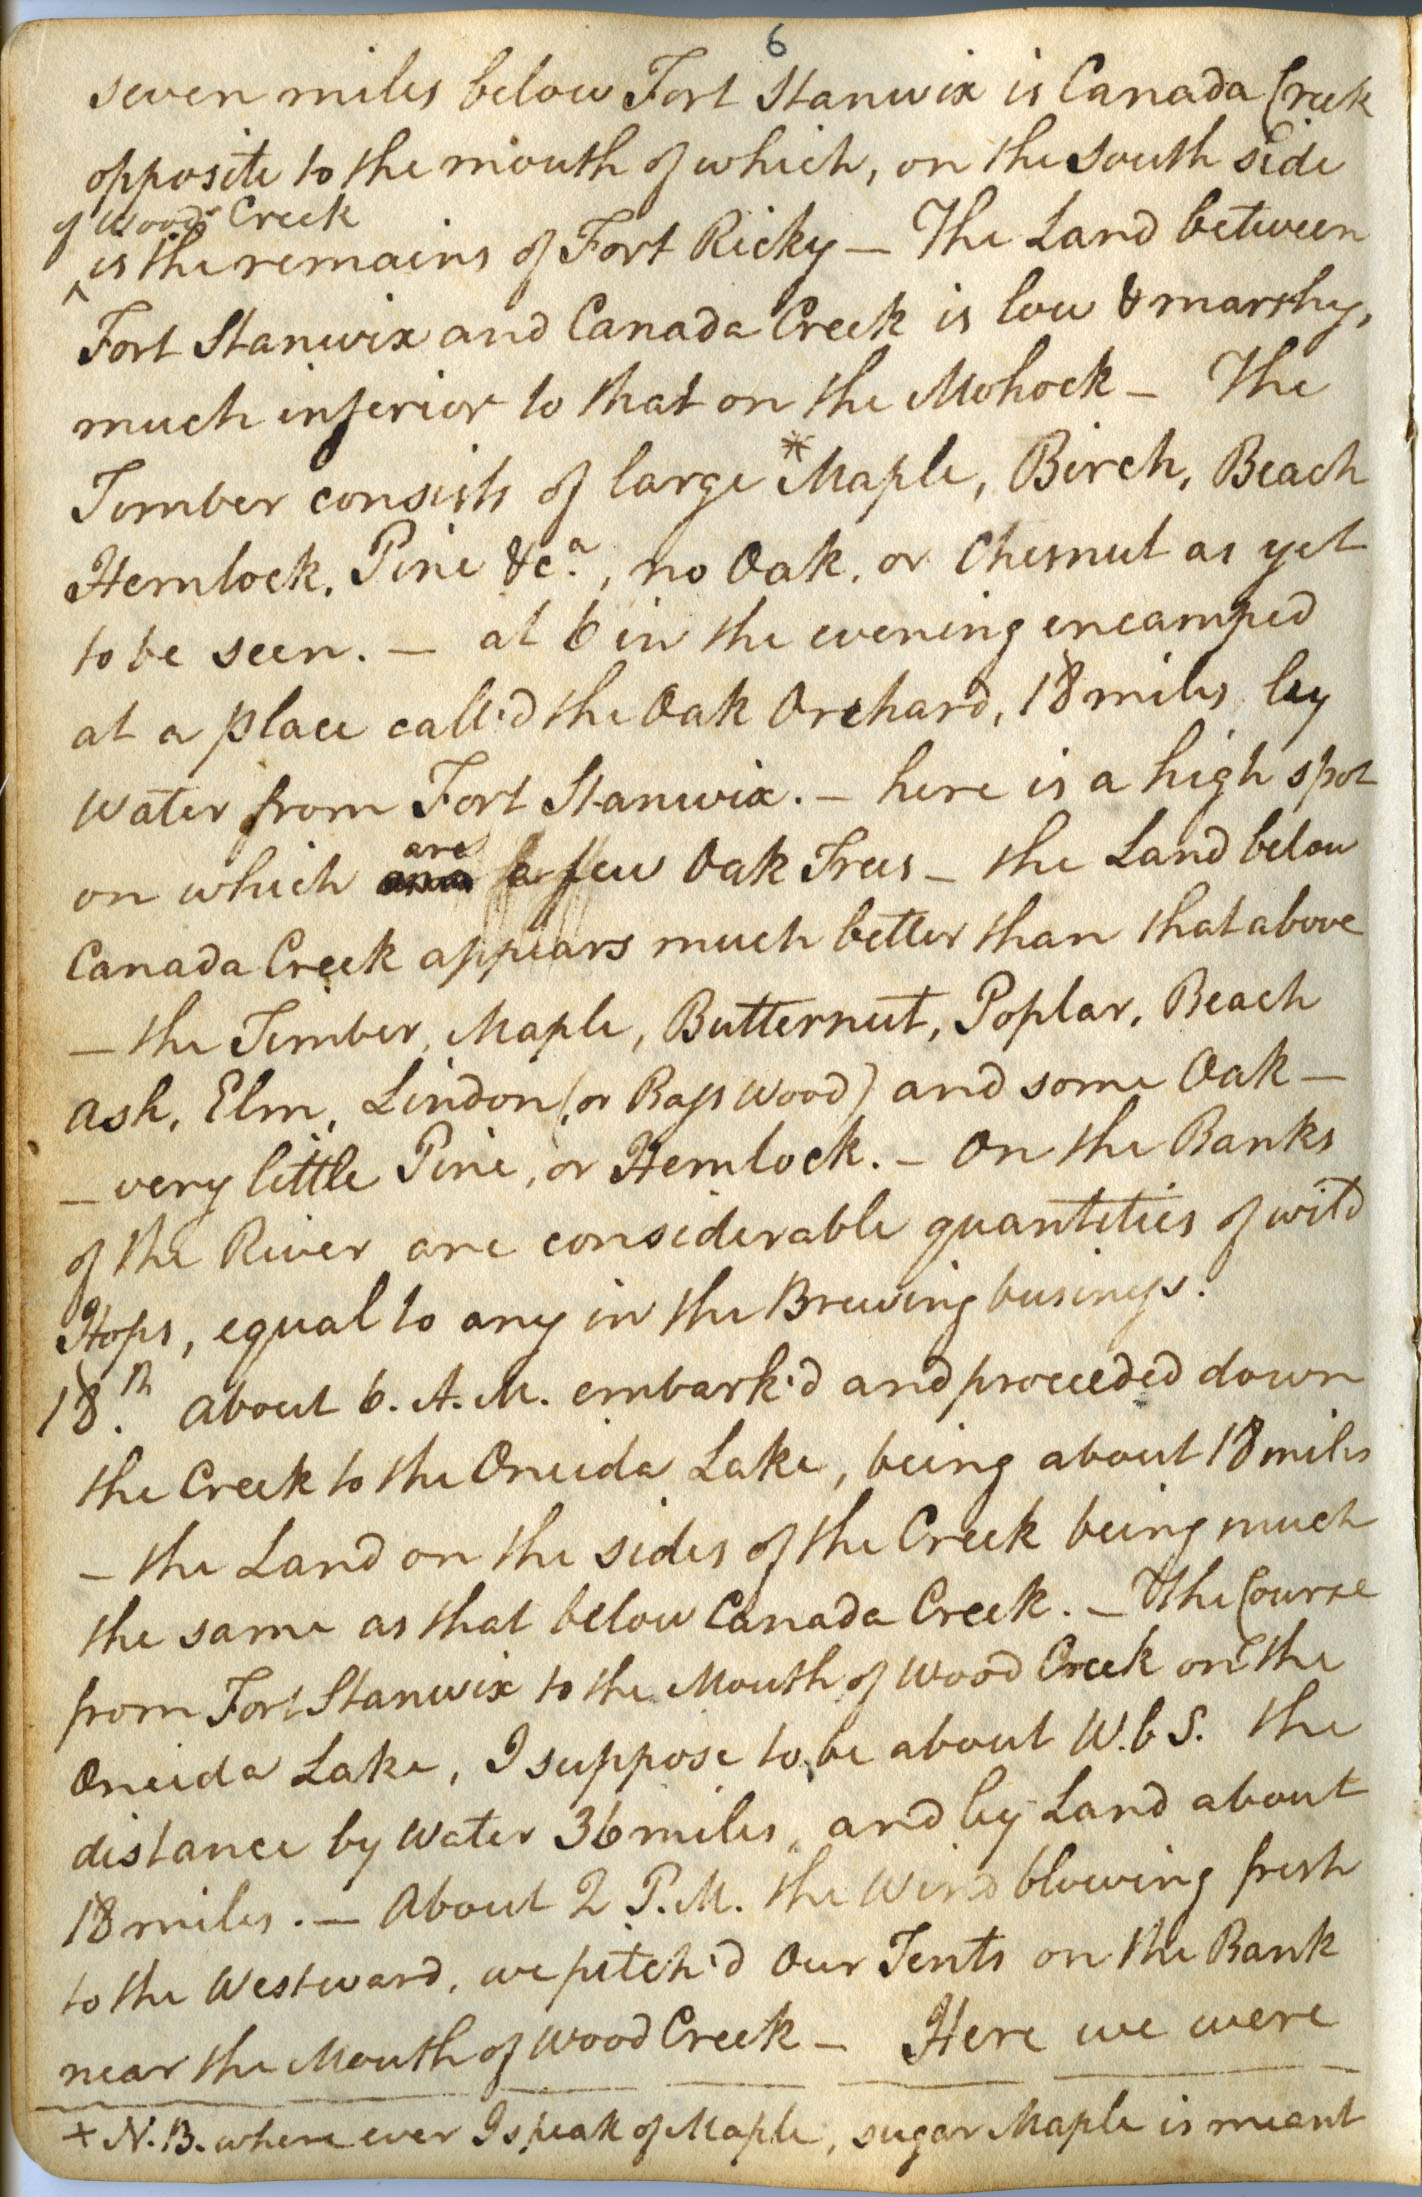 6
seven miles below Fort Stanwix is Canada Creek
opposite to the mouth of which, on the South Side
of Wood Creek
^ is the remains of Fort Ricky — The Land between
Fort Stanwix and Canada Creek is low & marshy,
much inferior to that on the Mohock — The
Timber consists of large *Maple, Birch, Beach
Hemlock, Pine &c.a, no Oak, or Chesnut as yet
to be seen. — at 6 in the evening encamped
at a place call'd the Oak Orchard, 18 miles by
Water from Fort Stanwix. — here is a high spot
are
on which a few Oak Trees — the Land below
Canada Creek appears much better than that above
— the Timber, Maple, Butternut, Poplar, Beach
Ash, Elm, Lindon (or Bass Wood) and some Oak —
— very little Pine, or Hemlock. — On the Banks
of the River are considerable quantities of wild
Hops, equal to any in the Brewing business.
18.th About 6. A.M. embark'd and proceeded down
the Creek to the Oneida Lake, being about 18 miles
— the Land on the sides of the Creek being much
the same as that below Canada Creek. — & the Course
from Fort Stanwix to the Mouth of Wood Creek on the
Oneida Lake, I suppose to be about W.b S. the
distance by Water 36 miles, and by Land about
18 miles. — About 2 P.M. the Wind blowing fresh
to the Westward, we pitch'd Our Tents on the Bank
near the Mouth of Wood Creek — Here we were
+ N.B. where ever I speak of Maple, sugar Maple is meant